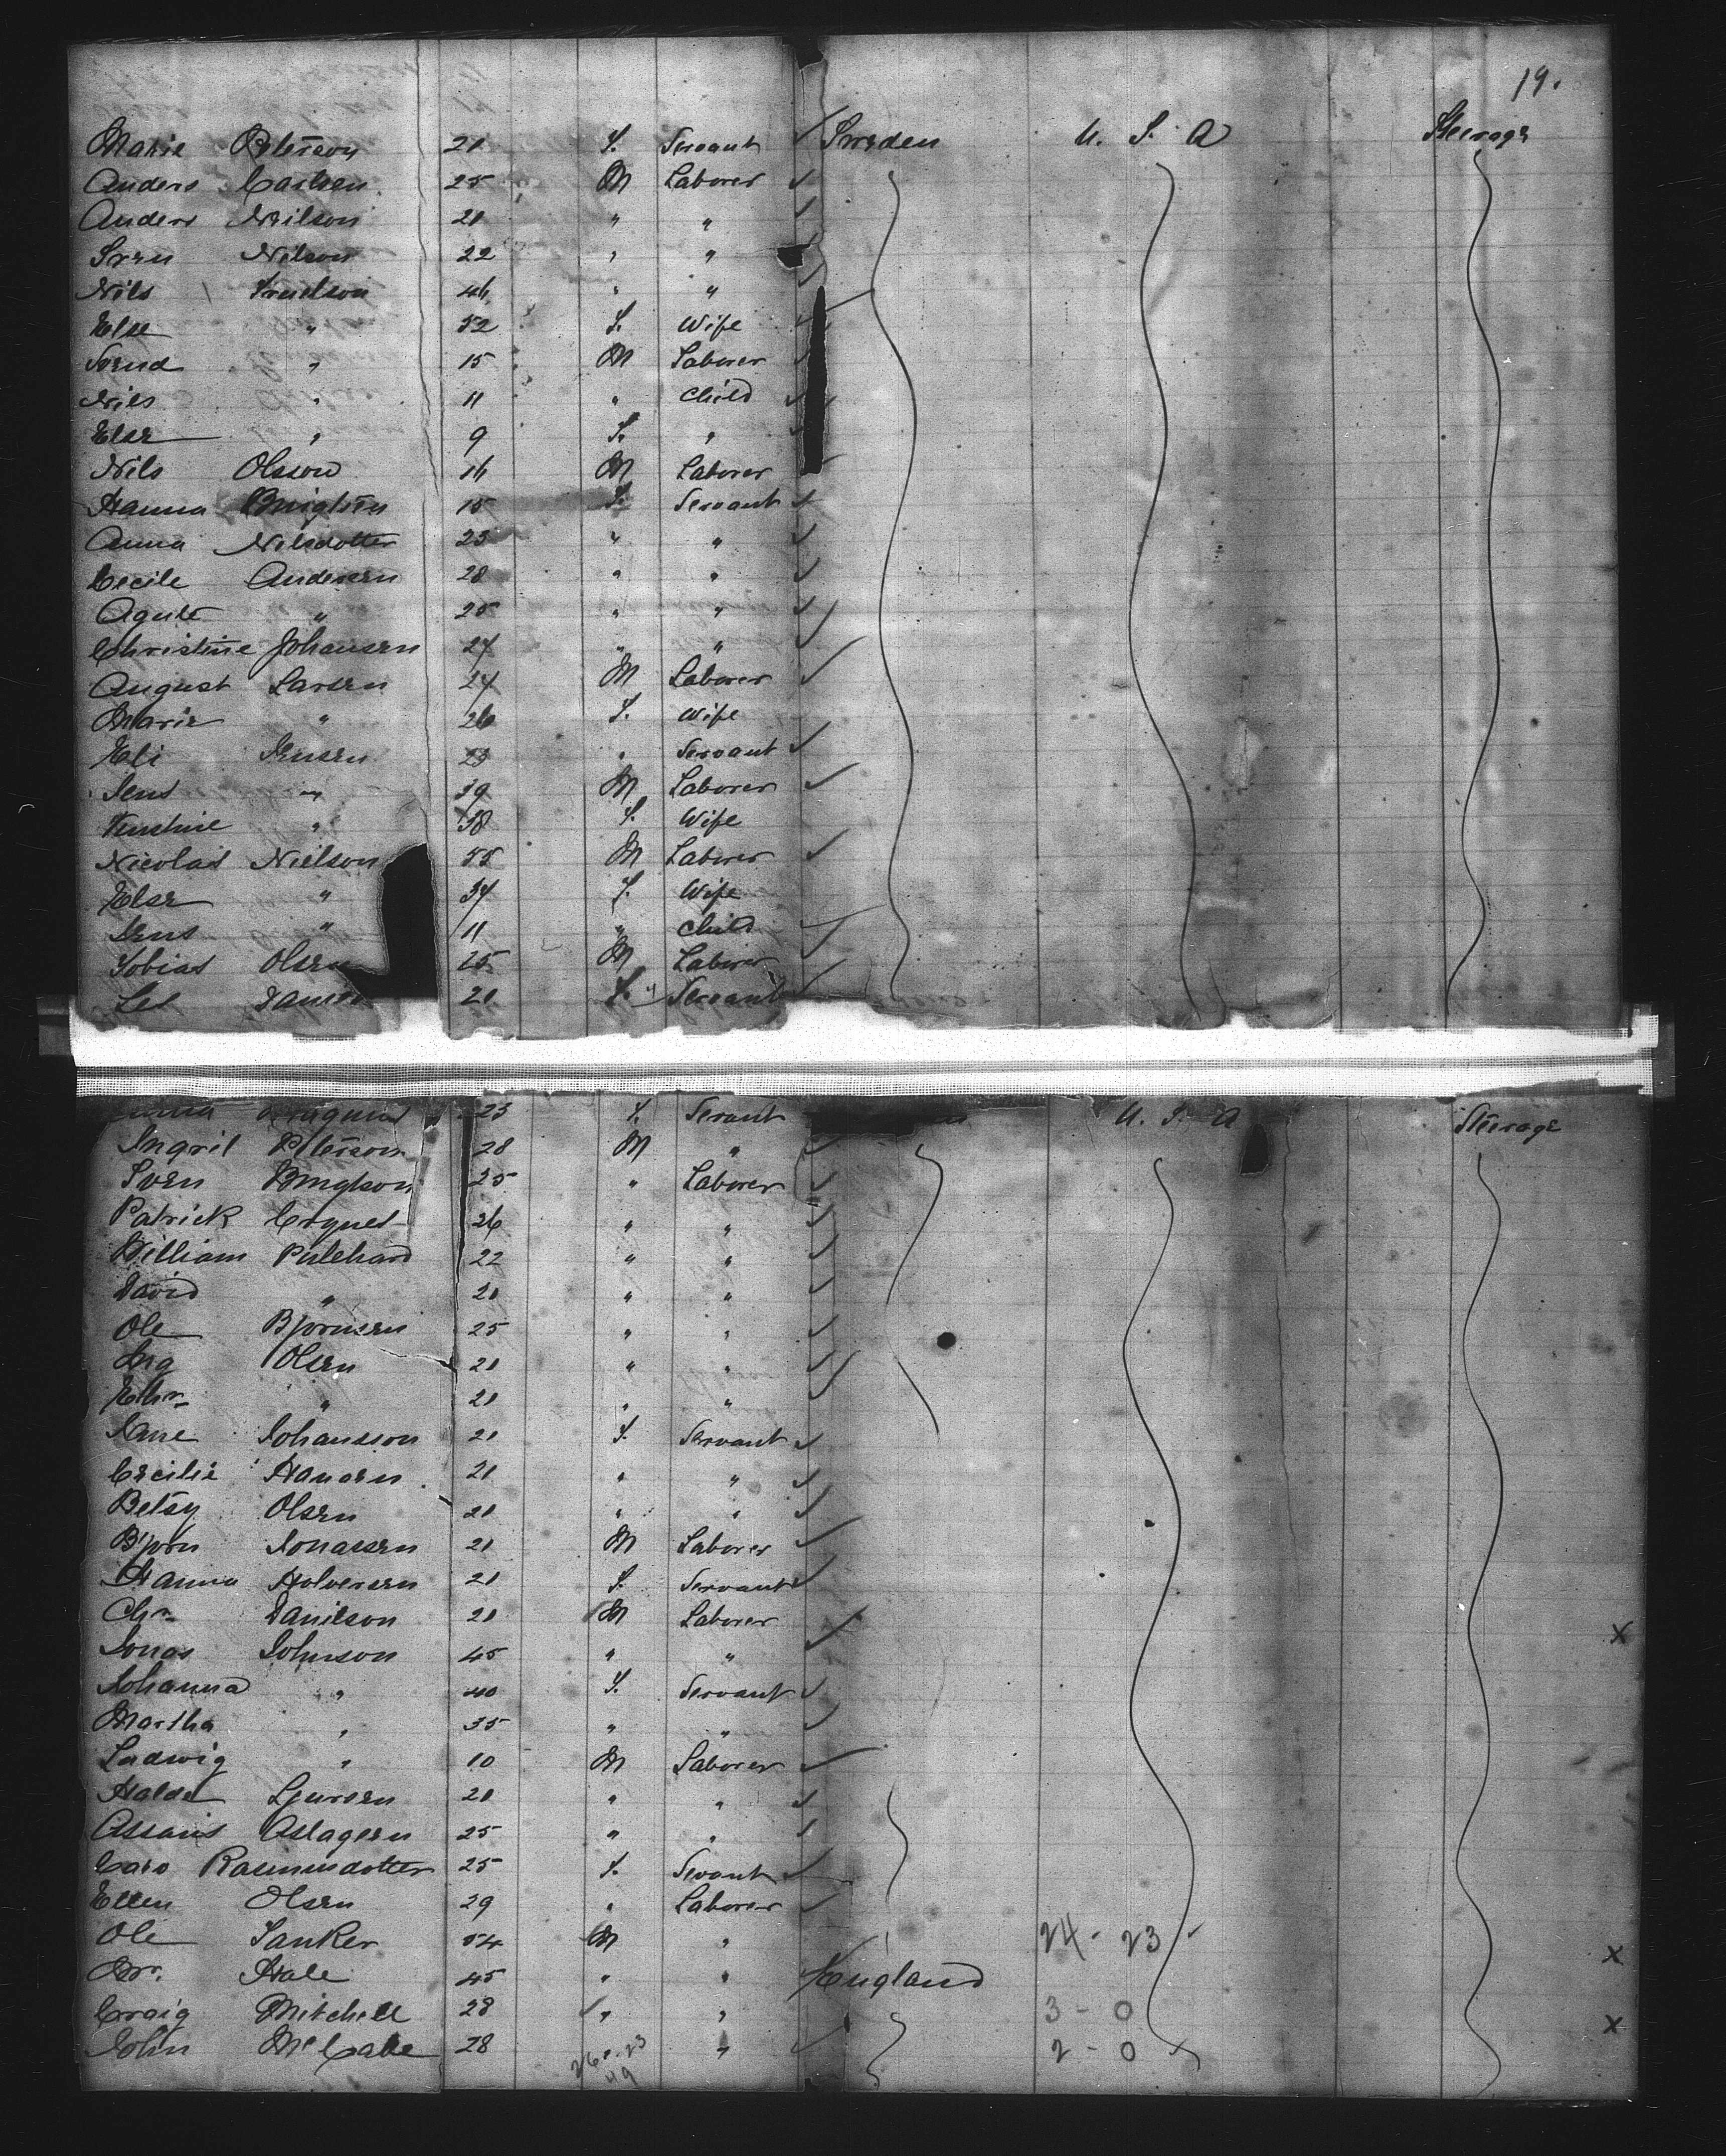 19.
Marie Peterson 21 F. Servant Sweden U. S. A Steerage
Anders Carlsen 25 M Laborer
Anders Neilson 21 " "
Sven Nilson 22 " "
Nils 46 " "
Else " 52 F. Wife
Svend " 15 M Laborer
Nils " 11 " Child
Else " 9 F. "
Nils Olsson 16 M Laborer
Hanna 15 F. Servant
Anna Nelsdotter 23 " "
Cecile Andersen 28 " "
" 25 " "
Christine Johansen 24 " "
August Larsen 24 M Laborer
Marie " 26 F. Wife
Eli Jensen 23 " Servant
Jens " 39 M Laborer
" 38 F. Wife
Nicolai Nielson 55 M Laborer
Else " 34 F. Wife
Jens " 11 " Child
Tobias Olsen 25 M Laborer
20 F. Servant
23 F. Servant U. S. A Steerage
Ingril Peterson 28 M "
Sven Bengtson 25 " Laborer
Patrick 26 " "
William Pritchard 22 " "
David " 21 " "
Ole Bjornsen 25 " "
Olsen 21 " "
" 21 " "
Jane Johansson 21 F. Servant
Cecilie Hansen 21 " "
Betsy Olsen 21 " "
Bjorn Jonassen 21 M Laborer
Hanna Halversen 21 F. Servant
Chr. Danilson 21 M Laborer
Jonas Johnson 45 " " X
Johanna " 40 F. Servant
Martha " 35 " "
Ludwig " 10 M Laborer
21 " "
Aslagsen 25 " "
Caro Rasmusdotter 25 F. Servant
Ellen Olsen 29 " Laborer
Ole Tanker 54 M " 24 - 23 X
Mr. Hale 45 " " England
Craig Mitchell 28 " " 3 - 0 X
John McCabe 28 " 2 - 0
26 - 23
49